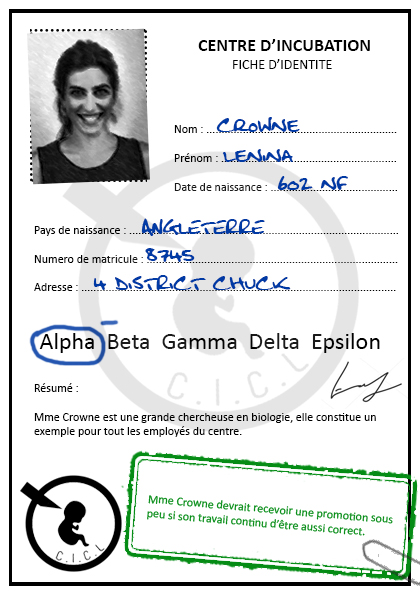 CENTRE D'INCUBATION
FICHE D'IDENTITE
Nom : CROWNE
Prénom : LENINA
Date de naissance : 602 NF
Pays de naissance : ANGLETERRE
Numero de matricule : 8745
Adresse : 4 DISTRICT CHUCK
Alpha Beta Gamma Delta Epsilon
C.I.C.L
Résumé :
Mme Crowne est une grande chercheuse en biologie, elle constitue un
exemple pour tout les employés du centre.
Mme Crowne devrait recevoir une promotion sous
peu si son travail continu d'être aussi correct.
C.I.C.L